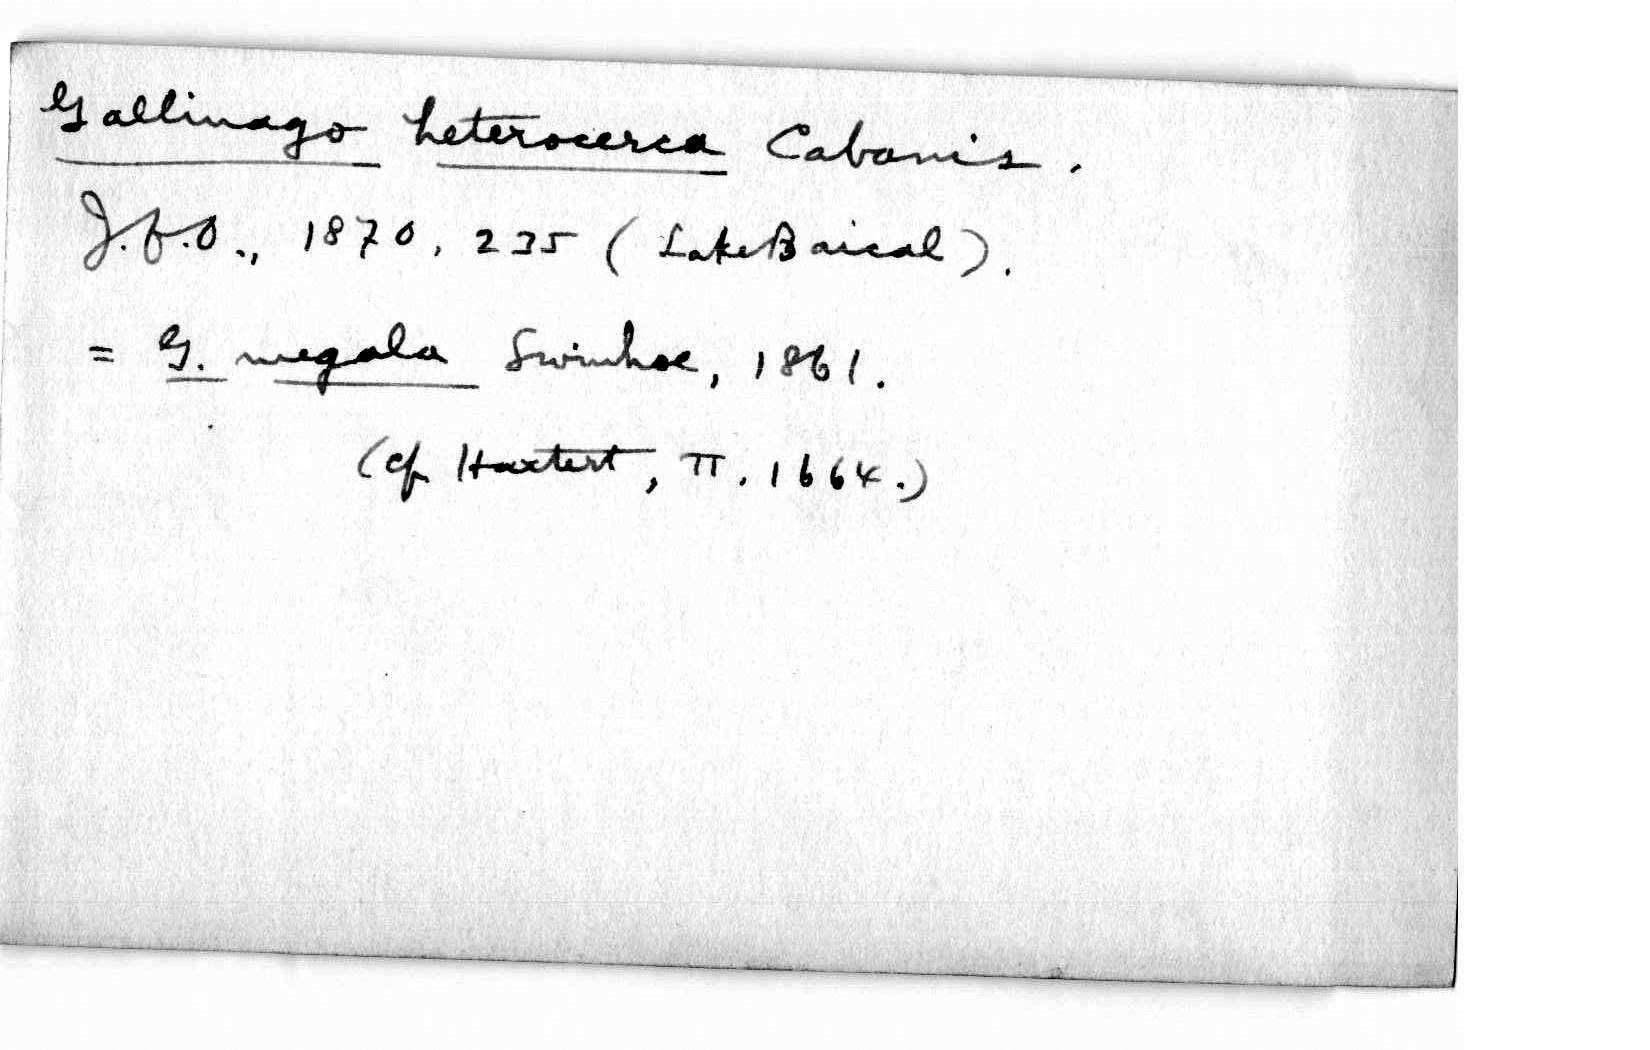 Gallinago heterocerca Cabanis.
J.f.O., 1870, 235 (Lake Baical).
= G. megala Swinhoe, 1861.
(cf. Hartert, II. 1664.)